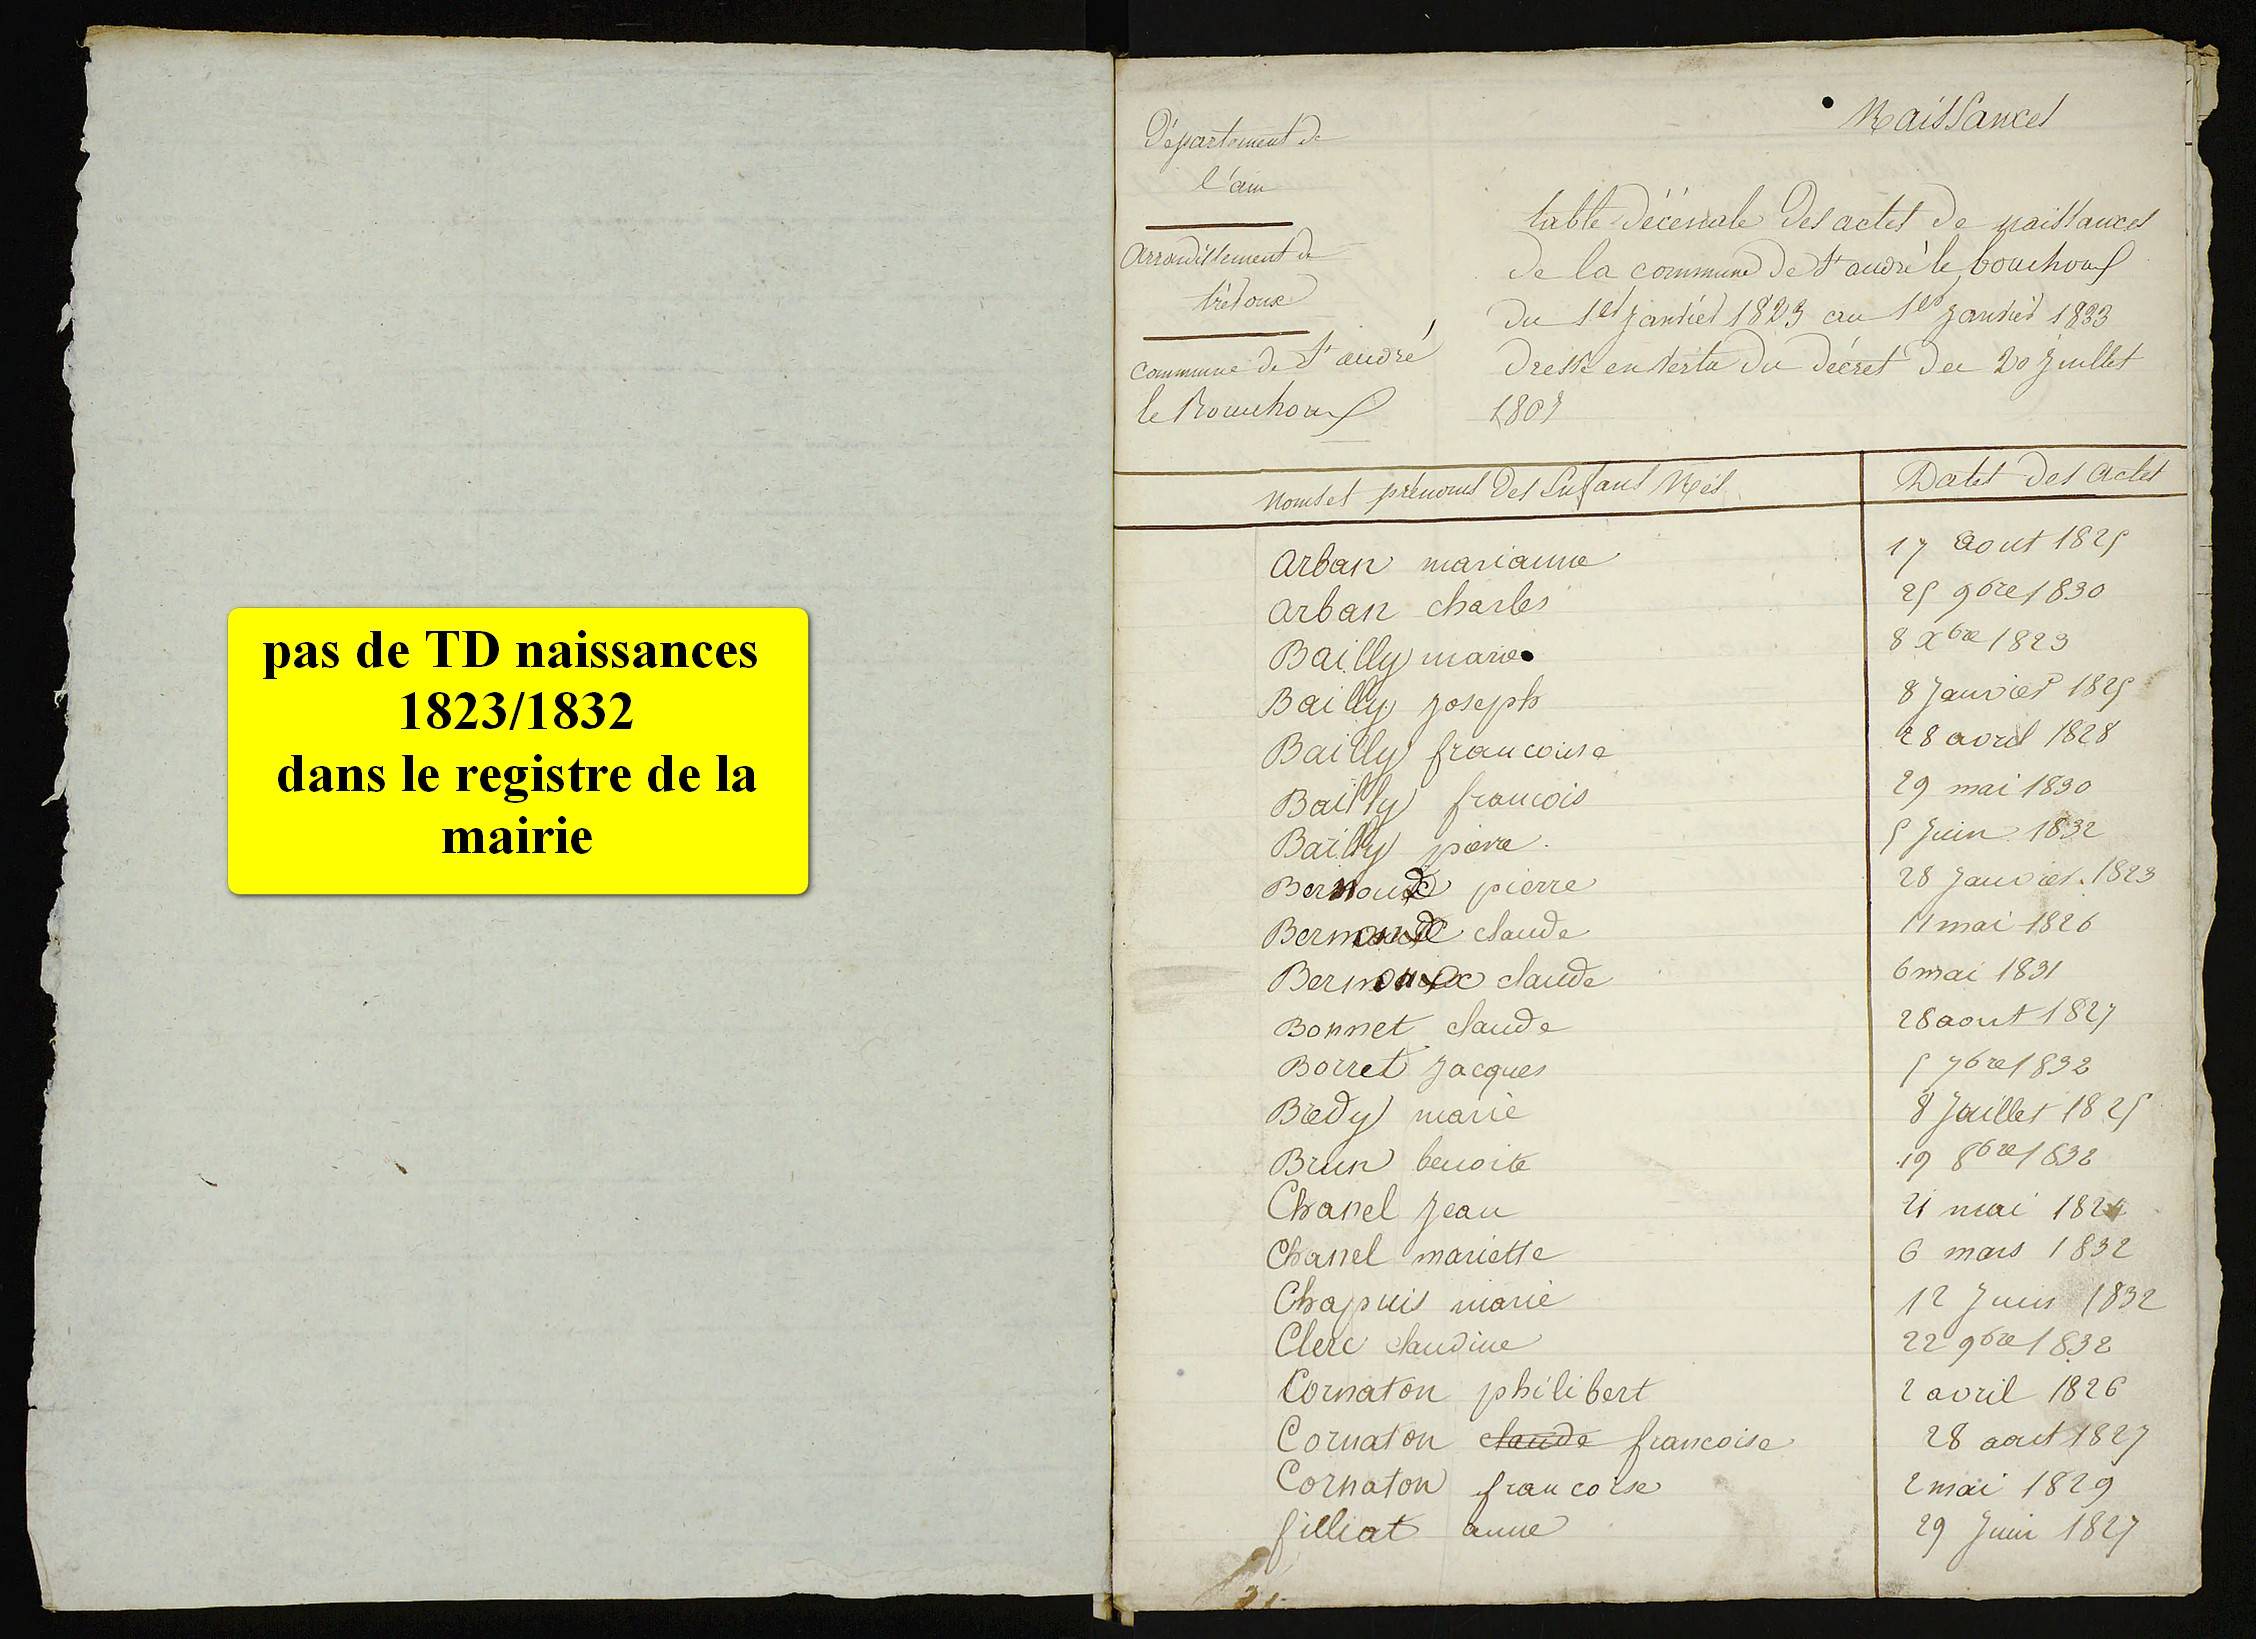 pas de TD naissances
1823/1832
dans le registre de la
mairie
Naissances
Département de
l'ain
arrondissement de
trévoux
commune de St andré
le Bouchoux
table décennale des actes de naissances
de la commune de St andré le bouchoux
du 1er janvier 1823 au 1er janvier 1833
dressé en vertu du décret du 20 juillet
1807
noms et prénoms des Enfans Nés
Dates des actes
arban marianne 17 aout 1825
arban charles 25 9bre 1830
Bailly marie 8 Xbre 1823
Bailly joseph 8 janvier 1825
Bailly francoise 28 avril 1828
Bailly francois 29 mai 1830
Bailly pierre 5 juin 1832
Bernoux pierre 28 janvier 1823
Bernoux claude 11 mai 1826
Bernoux claude 6 mai 1831
Bonnet claude 28 aout 1827
Borret jacques 5 7bre 1832
Bredy marie 8 juillet 1825
Brun benoite 19 8bre 1832
Chanel jean 21 mai
Chanel mariette 6 mars 1832
Chapuis marie 12 juin 1832
Clerc claudine 22 9bre 1832
Cornaton philibert 2 avril 1826
Cornaton claude francoise 28 aout 1827
Cornaton francoise 2 mai 1829
filliat anne 29 juin 1827